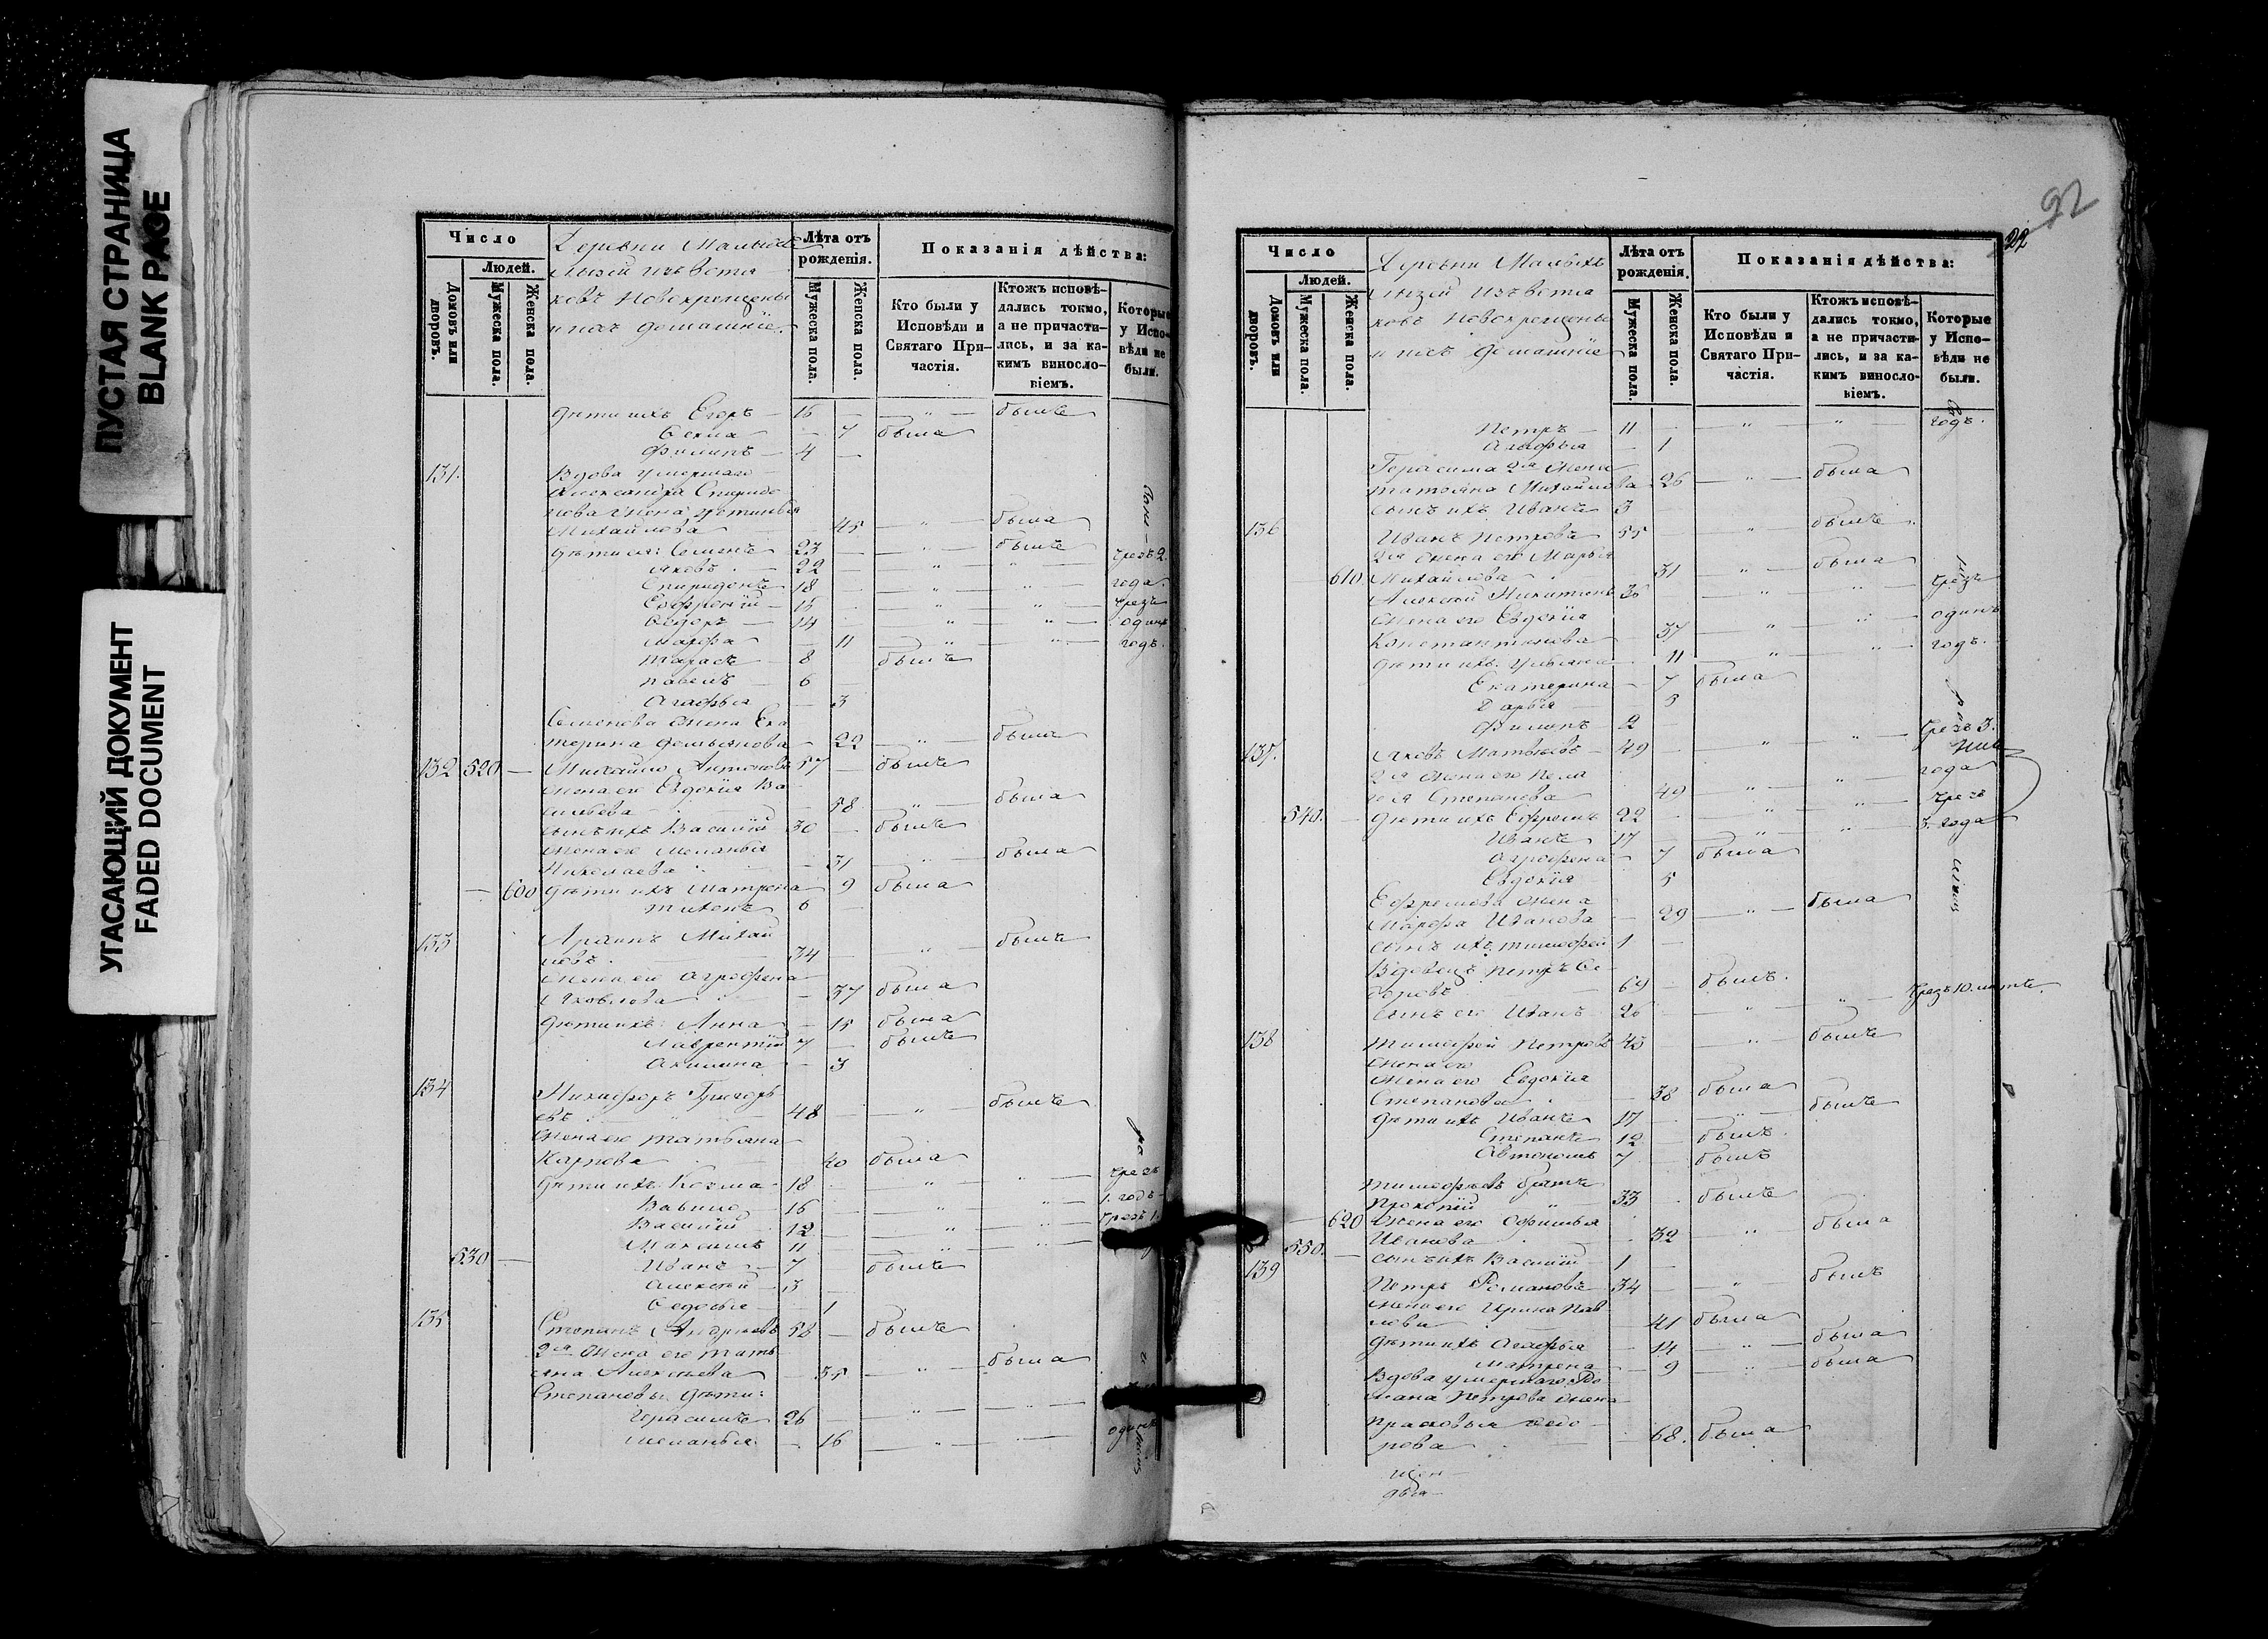 ПУСТАЯ СТРАНИЦА
BLANK PAGE
УГАСАЮЩИЙ ДОКУМЕНТ
FADED DOCUMENT
Число
Людей.
Домовъ или дворовъ.
Мужеска пола.
Женска пола.
Деревни Малыхъ
новокрещены
и ихъ домашніе.
Лѣта отъ рожденія.
Мужеска пола.
Женска пола.
Показанія дѣйства:
Кто были у Исповѣди и Святаго При-частія.
Ктожъ исповѣ-дались токмо, а не причасти-лись, и за ка-кимъ виносло-віемъ.
Которые у Испо-вѣди не были.
дѣти ихъ Егоръ 16 — — " — былъ
7 была
Филипъ — 4 —
131. Вдова умершаго
Александра Спиридо
нова жена Устинья
Михайлова 45 — " — была
дѣти ея: Семенъ 23 — " — былъ
Яковъ — 22 — " — " чрезъ 2.
Спиридонъ 18 — " — " года.
Ефремъ 15 " " чрезъ
Ѳедоръ — 14 " " одинъ
Марфа — 11 — " — " годъ.
Тарасъ — 8 былъ
Павелъ — 6
Агафья — 3
Семенова жена Ека
терина Демьянова — 22 — " — была
132 520 — Михайло Антоновъ 57 — былъ
жена его Евдокія Ва
сильева 58 — " — была
сынъ ихъ Василій 30 — былъ
жена его Меланья
Николаева 31 — " — была
— 600 дѣти ихъ Матрена 9 была
Тихонъ 6 —
133 Архипъ Михай
ловъ. 34 — " — былъ
жена его Агрофена
Яковлева — 37 была
дѣти ихъ: Анна — 15 была
Лаврентій 7 — былъ
Акилина — 3
134 Никифоръ Григорь
евъ 48 — " — былъ
жена его Татьяна
Карпова 40 была
дѣти ихъ Козма 18 — " — " чрезъ
Вавило — 16 — " 1. годъ
Василій 12 — " — " чрезъ 1.
Максимъ 11 — " — "
530 — Иванъ — 7 — былъ
Алексѣй — 3 —
Ѳедосья — 1
135 Степанъ Андреевъ 58 — былъ
2я жена его Тать
яна Алексѣева — 35 — " — была
Степановы дѣти:
Герасимъ 26 — " — "
Меланья — 16 — " — одинъ
92
22
Число
Людей.
Домовъ или дворовъ.
Мужеска пола.
Женска пола.
Деревни Малыхъ
новокрещены
и ихъ домашніе
Лѣта отъ рожденія.
Мужеска пола.
Женска пола.
Показанія дѣйства:
Кто были у Исповѣди и Святаго При-частія.
Ктожъ исповѣ-дались токмо, а не причасти-лись, и за ка-кимъ виносло-віемъ.
Которые у Испо-вѣди не были.
Петръ — 11 — " — " — годъ.
Агафья — 1
Герасима 2я жена
Татьяна Михайлова 26 — " — была
сынъ ихъ Иванъ 3
136 Иванъ Петровъ 55 — " — былъ
2я жена его Марья
610 Михайлова 31 — " — была
Алексѣй Никитинъ 36 — " — " чрезъ
жена его Евдокія
Константинова — 37 — " — " одинъ
дѣти ихъ Ульяна — 11 — " — " годъ.
Екатерина — 7 была
Дарья — 3
Филипъ 2 —
137. Яковъ Матвѣевъ — 49 — " — " чрезъ 3.
2я жена его Пела
гея Степанова 49 — " — " года
540. — дѣти ихъ Ефремъ 22 — " — " чрезъ
Иванъ 17 — " — " 3. года
Агрофена 7 была
Евдокія 5
Ефремова жена
Марфа Иванова — 29 — " — была
сынъ ихъ Тимофей 1 —
Вдовецъ Петръ Ѳе-
доровъ 64 — былъ.
сынъ его Иванъ 26 — " — " чрезъ 10. лѣтъ.
138 Тимофей Петровъ 43 — " — былъ
жена его
жена его Евдокія
Степанова 38 была
дѣти ихъ Иванъ 17 — " — былъ
Степанъ 12 — былъ
Автономъ 7 — былъ
Тимофеевъ братъ
Прокопій " 33 — былъ
— 620 жена его Офимья
Иванова 32 " — была
550. — сынъ ихъ Василій — 1 —
139 Петръ Романовъ 34 — " — былъ
жена его Ирина Пав
лова 41 была
дѣти ихъ Агафья — 14 — " — была
Матрена — 9 — " — была
Вдова умершаго Ро
мана Петрова жена
Прасковья Ѳедо
рова — 68. была